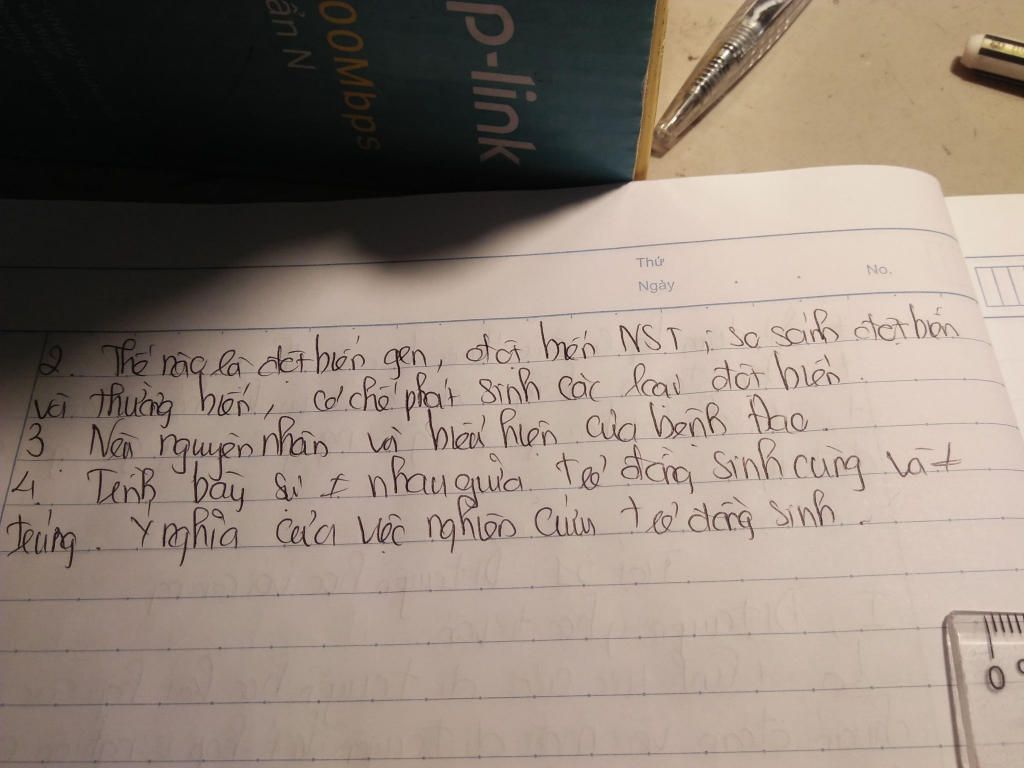 p-link
00Mbps
ẩn N
Thứ
Ngày
No.
2. Thế nào là đột biến gen, đột biến NST; so sánh đột biến
với thường biến, cơ chế phát sinh các loại đột biến.
3 Nêu nguyên nhân và biểu hiện của bệnh Đao.
4. Trình bày sự ≠ nhau giữa trẻ đồng sinh cùng và ≠
trứng. Ý nghĩa của việc nghiên cứu trẻ đồng sinh.
0